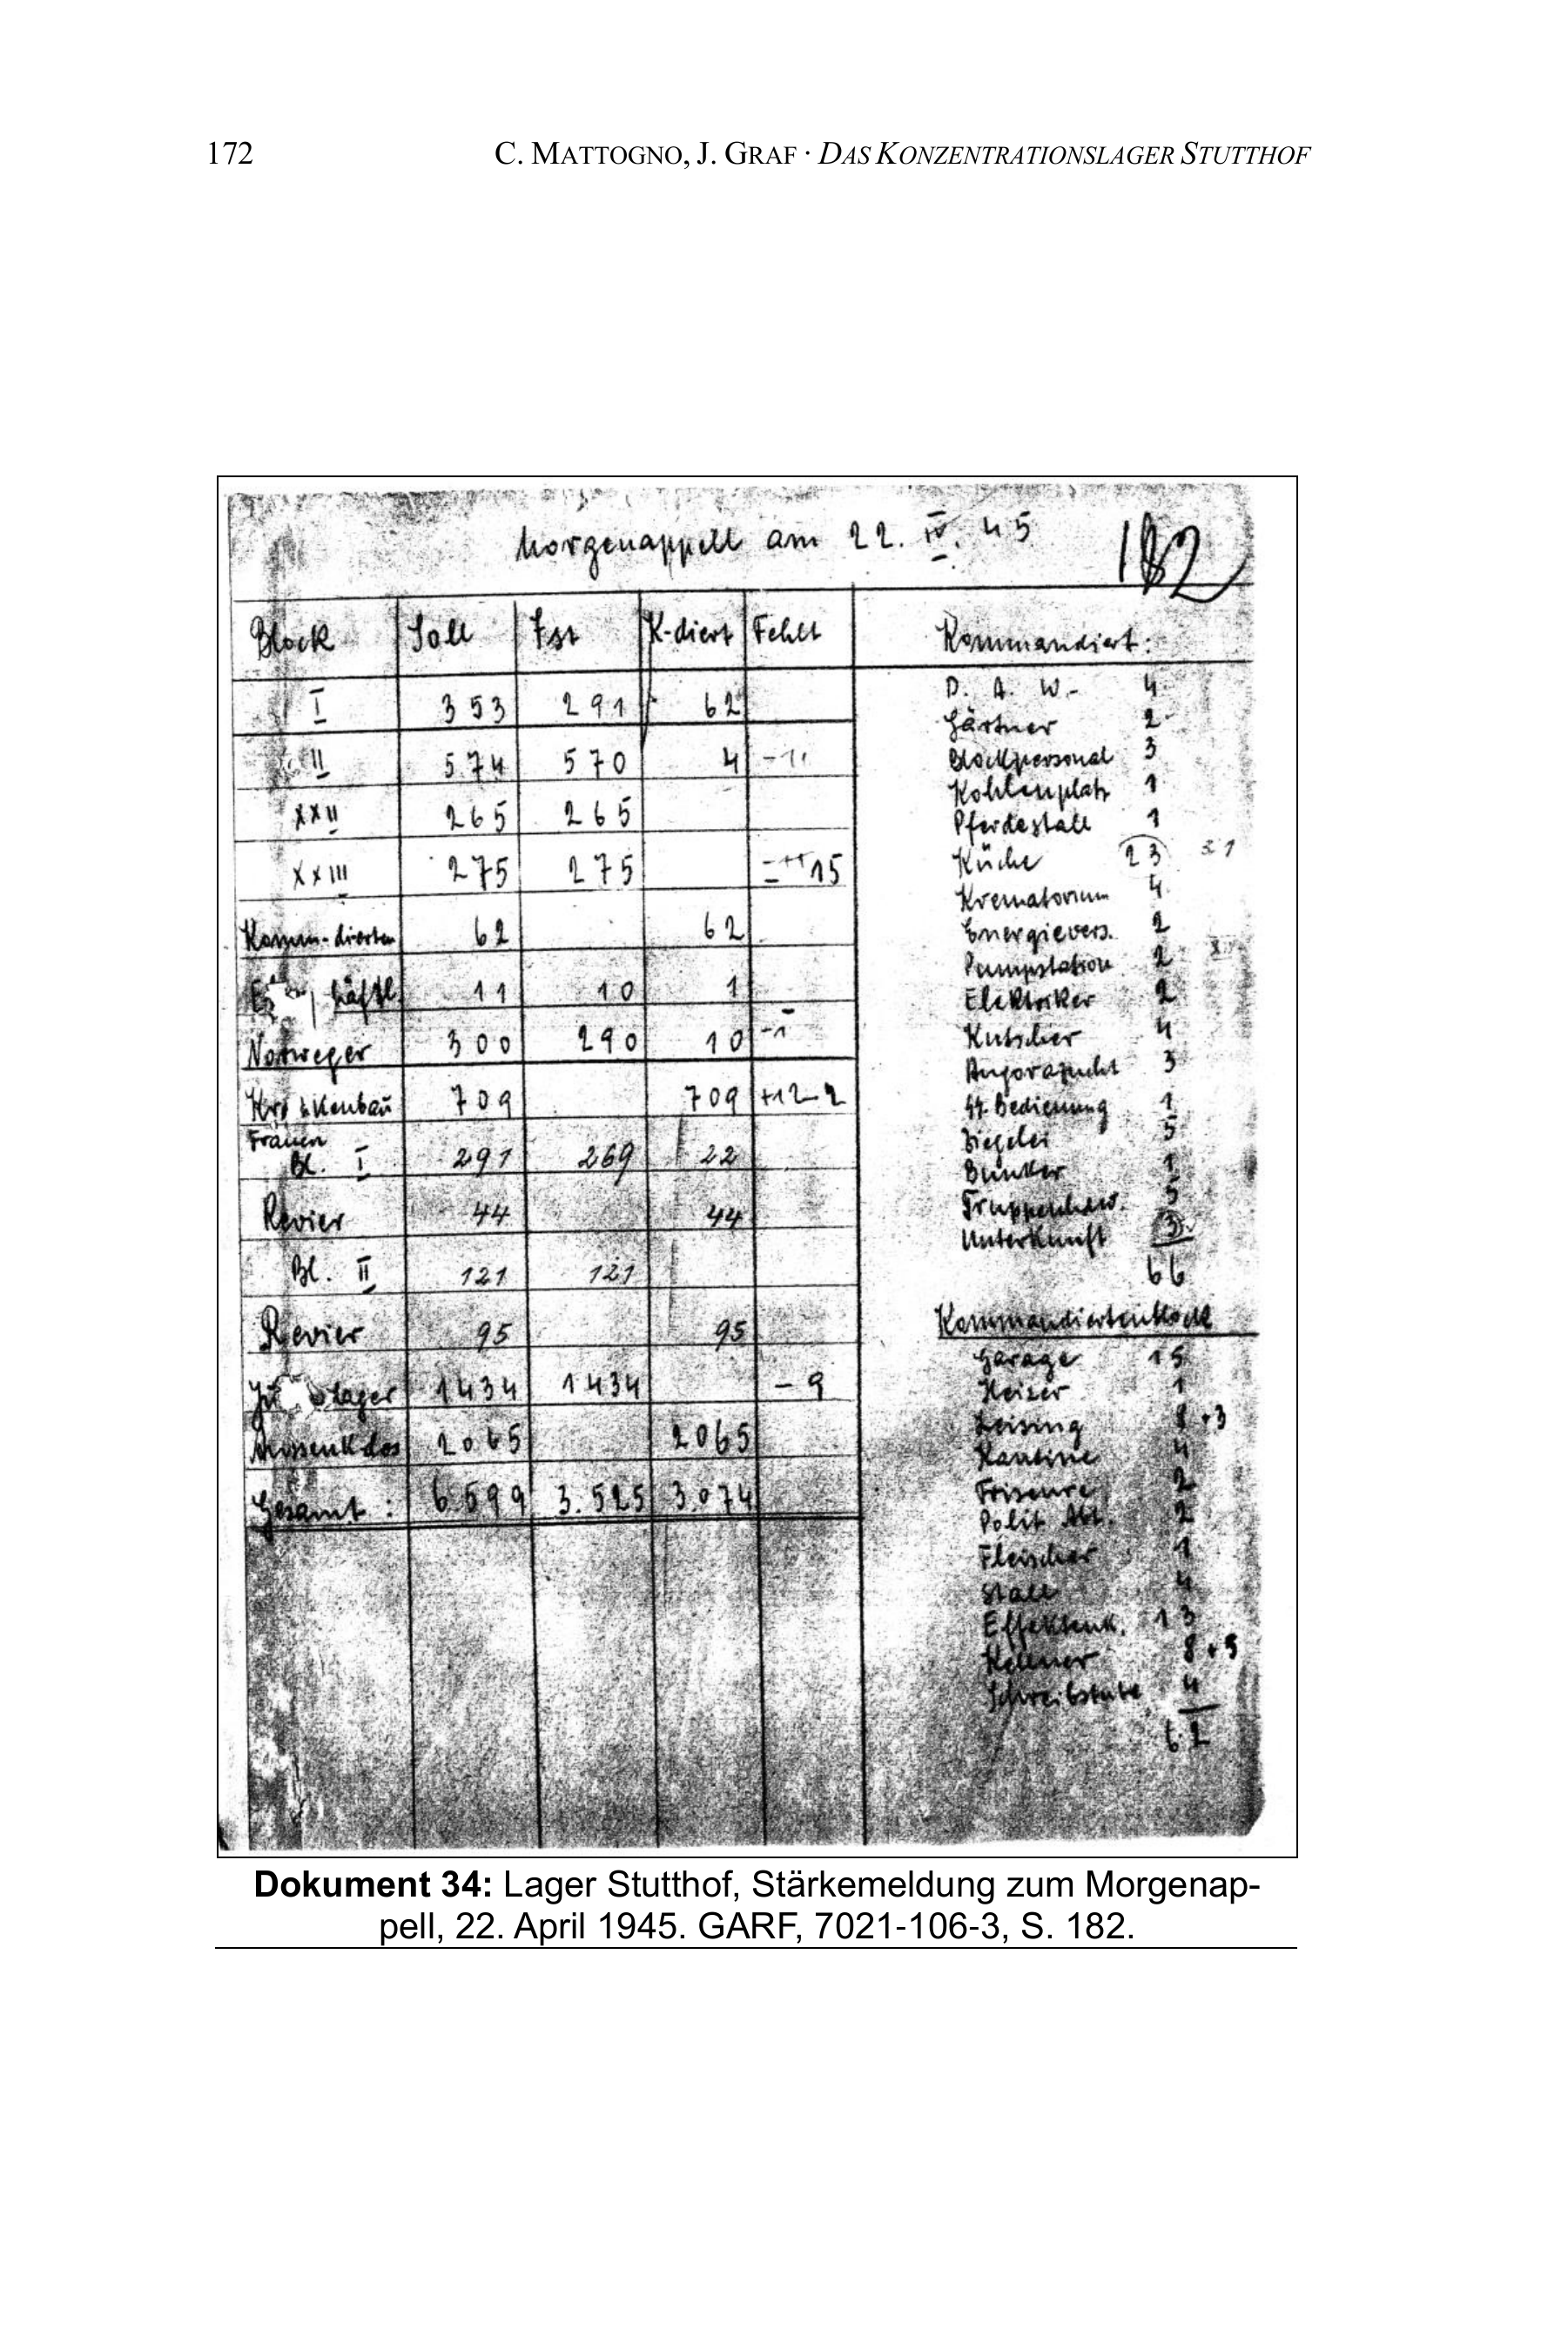 172 C. MATTOGNO, J. GRAF · DAS KONZENTRATIONSLAGER STUTTHOF
Morgenappell am 22. IV. 45
182
Block Soll Ist K-diert Fehlt
I 353 291 62
II 574 570 4
XXII 265 265
XXIII 275 275 15
Komm-dierten 62 62
häftl 11 10 1
Norweger 300 290 10 -1
Krankenbau 709 709 +12-2
Frauen
Bl. I 291 269 22
Revier 44 44
Bl. II 121 121
Revier 95 95
lager 1434 1434 - 9
Aussenkdos 2065 2065
Gesamt: 6.599 3.525 3.074
Kommandiert:
D. A. W.- 4
Gärtner 2
Blockpersonal 3
Kohlenplatz 1
Pferdestall 1
Küche 23
Krematorium 4
Energievers. 2
Pumpstation 2
Elektriker 2
Kutscher 4
Angorazucht 3
SS-Bedienung 1
Ziegelei 5
Bunker 1
Truppenlaw. 5
Unterkunft 3
66
Kommandiertenblock
Garage 15
Heizer 1
Leising 8 +3
Kantine 4
Friseure 2
Polit. Abt. 2
Fleischer 1
Stall 4
Effektenk. 13
Kellner 8 +5
Schreibstube 4
62
Dokument 34: Lager Stutthof, Stärkemeldung zum Morgenap-
pell, 22. April 1945. GARF, 7021-106-3, S. 182.